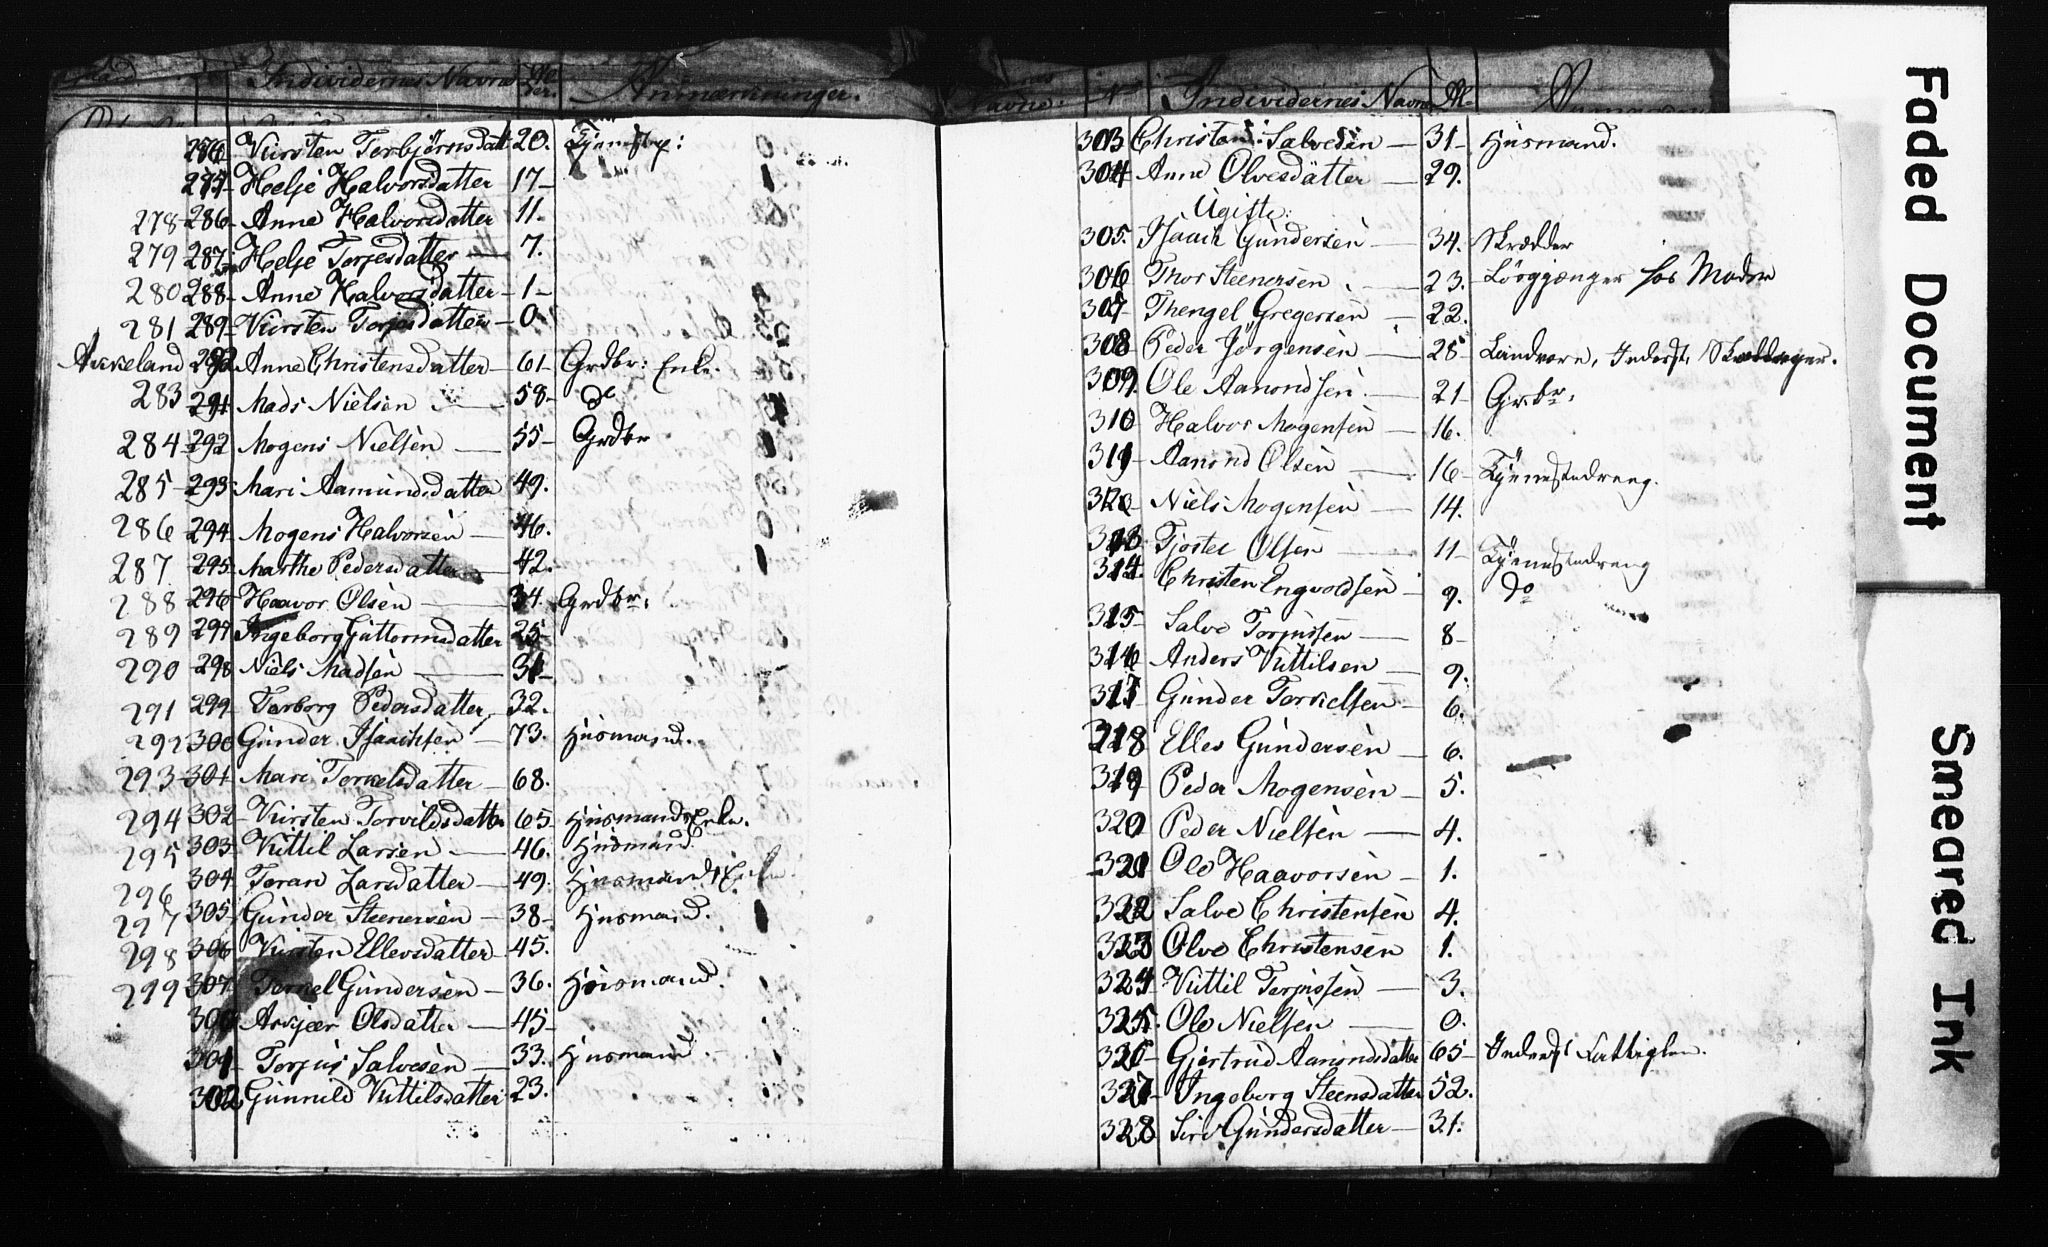 Individernes Navne Al- der. Anmærkninger.
276 Kirsten Torbjørnsdatt 20.
277 Helje Halvorsdatter 17
278 286 Anne Halvorsdatter 11.
279 287 Helje Torjesdatter 7.
280 288 Anne Halvorsdatter 1
281 289 Kirsten Torjesdatter 0
Aasseland 282 Anne Christensdatter 61 Grdbr: Enke.
283 291 Mads Nielsen 58 do
284 292 Mogens Nielsen 55 Grdbr
285 293 Mari Aamundsdatter 49.
286 294 Mogens Halvorsen 46.
287 295 Marthe Pedersdatter 42.
288 296 Haavor Olsen 34. Grdbr.
289 297 Ingeborg Guttormsdatter 25
290 298 Niels Madsen 31
291 299 Torborg Pedersdatter 32.
292 300 Gunder Isaachsen 73. Husmand.
293 301 Mari Torkelsdatter 68.
294 302 Kirsten Torvildsdatter 65 Husmands Enke.
295 303 Kittil Larsen 46. Husmand
296 304 Toran Larsdatter 49. Husmands Enke
297 305 Gunder Steenersen 38 Husmand.
298 306 Kirsten Ellevsdatter 45.
299 307 Torkel Gundersen 36. Husmand.
300 Askjer Olsdatter 45
301 Torjus Salvesen 33. Husmand.
302 Gunnild Kittilsdatter 23.
Navne. N Individernes Navne Al-
303 Christen Salvesen 31 Husmand.
304 Anne Olvesdatter 29.
Ugifte:
305. Isaach Gundersen 34. Skrædder
306 Thor Steenersen 23. Løsgjænger hos Moder
307 Thengel Gregersen 22.
308 Peder Jørgensen 25 Landværn, Inderst,
309. Ole Aanondsen 21 Grdbr.
310 Halvor Mogensen 16.
311 Aanond Olsen 16 Tjenestedreng.
312 Niels Mogensen 14.
313 Tjostel Olsen 11 Tjenestedreng
314. Christen Engvoldsen 9. do
315 Salve Torjussen 8
316 Anders Kittilsen 9.
317 Gunder Torkelsen 6.
318 Elles Gundersen 6.
319 Peder Mogensen 5.
320 Peder Nielsen 4.
321 Ole Haavorsen 1.
322 Salve Christensen 4.
323 Olve Christensen 1.
324 Kittil Torjussen 3.
325. Ole Nielsen 0.
326 Gjertrud Aanondsdatter 65 Inderst Fattiglem.
327 Ingeborg Steensdatter 52.
328 Siri Gundersdatter 31.
Faded Document
Smeared Ink